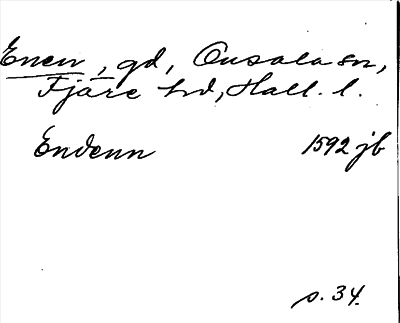 Enen, gd, Onsala sn,
Fjäre hd, Hall. l.
Endenn 1592 jb
s. 34.